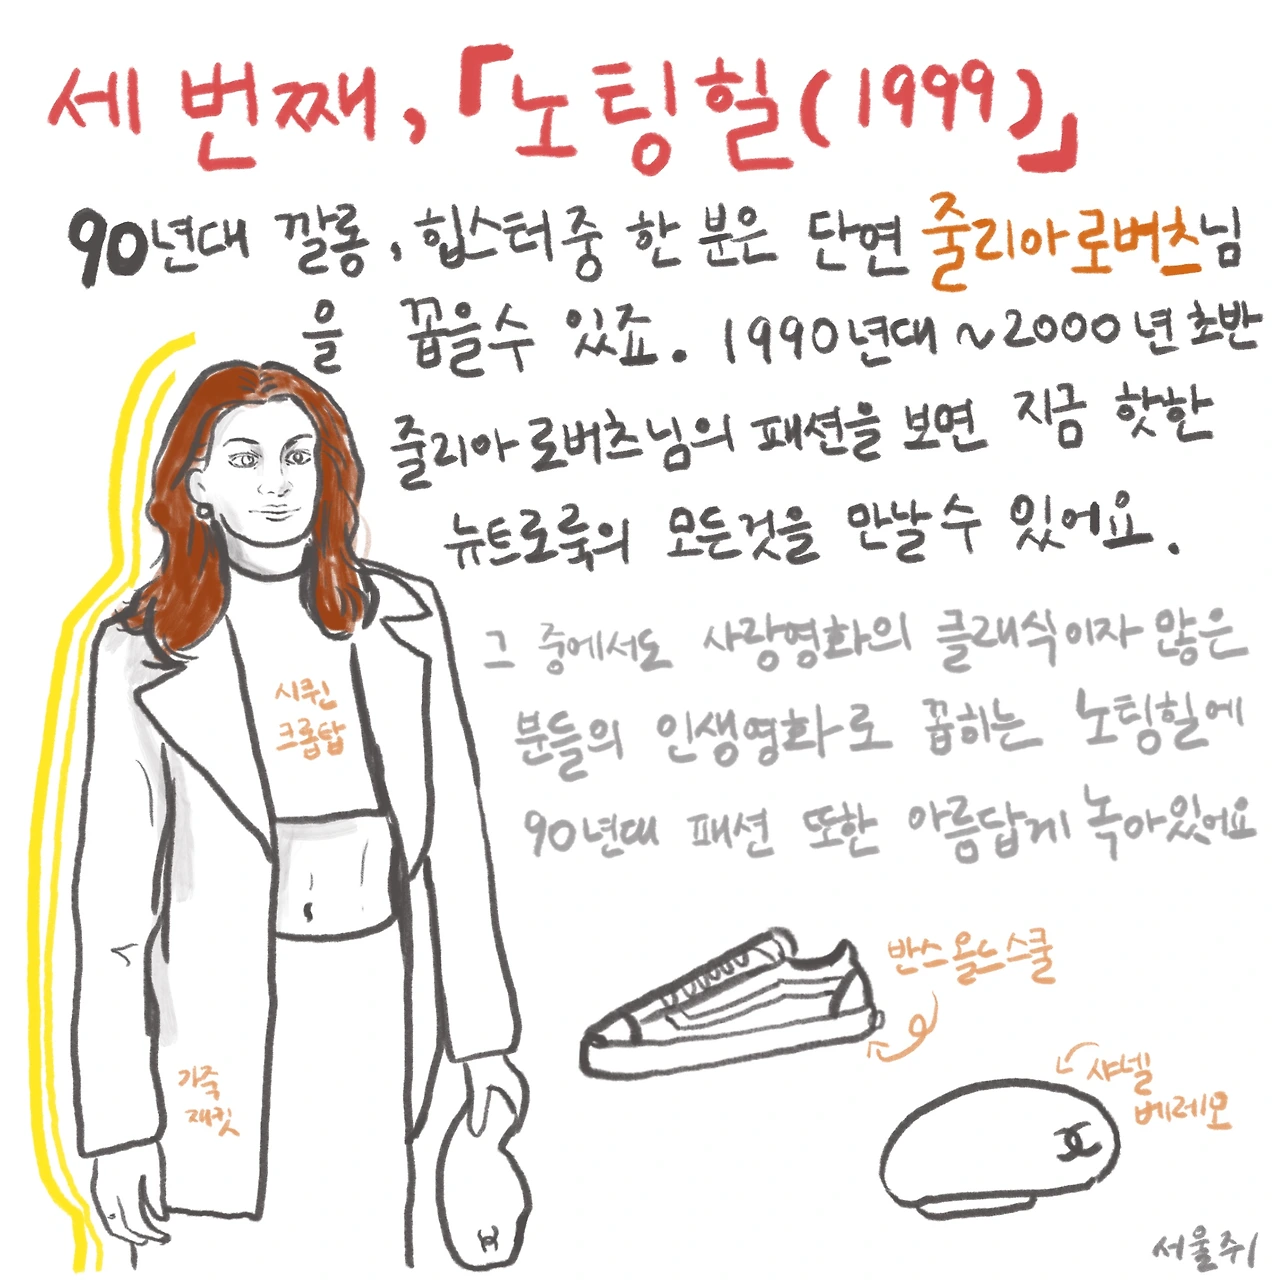 세 번째, 「노팅힐(1999)」
90년대 깔롱, 힙스터 중 한 분은 단연 줄리아로버츠님
을 꼽을수 있죠. 1990년대 ~2000년 초반
줄리아 로버츠님의 패션을 보면 지금 핫한
뉴트로룩의 모든것을 만날 수 있어요.
그 중에서도 사랑영화의 클래식이자 많은
분들의 인생영화로 꼽히는 노팅힐에
90년대 패션 또한 아름답게 녹아있어요
시퀸
크롭탑
반스 올드스쿨
가죽
재킷
샤넬
베레모
서울쥐